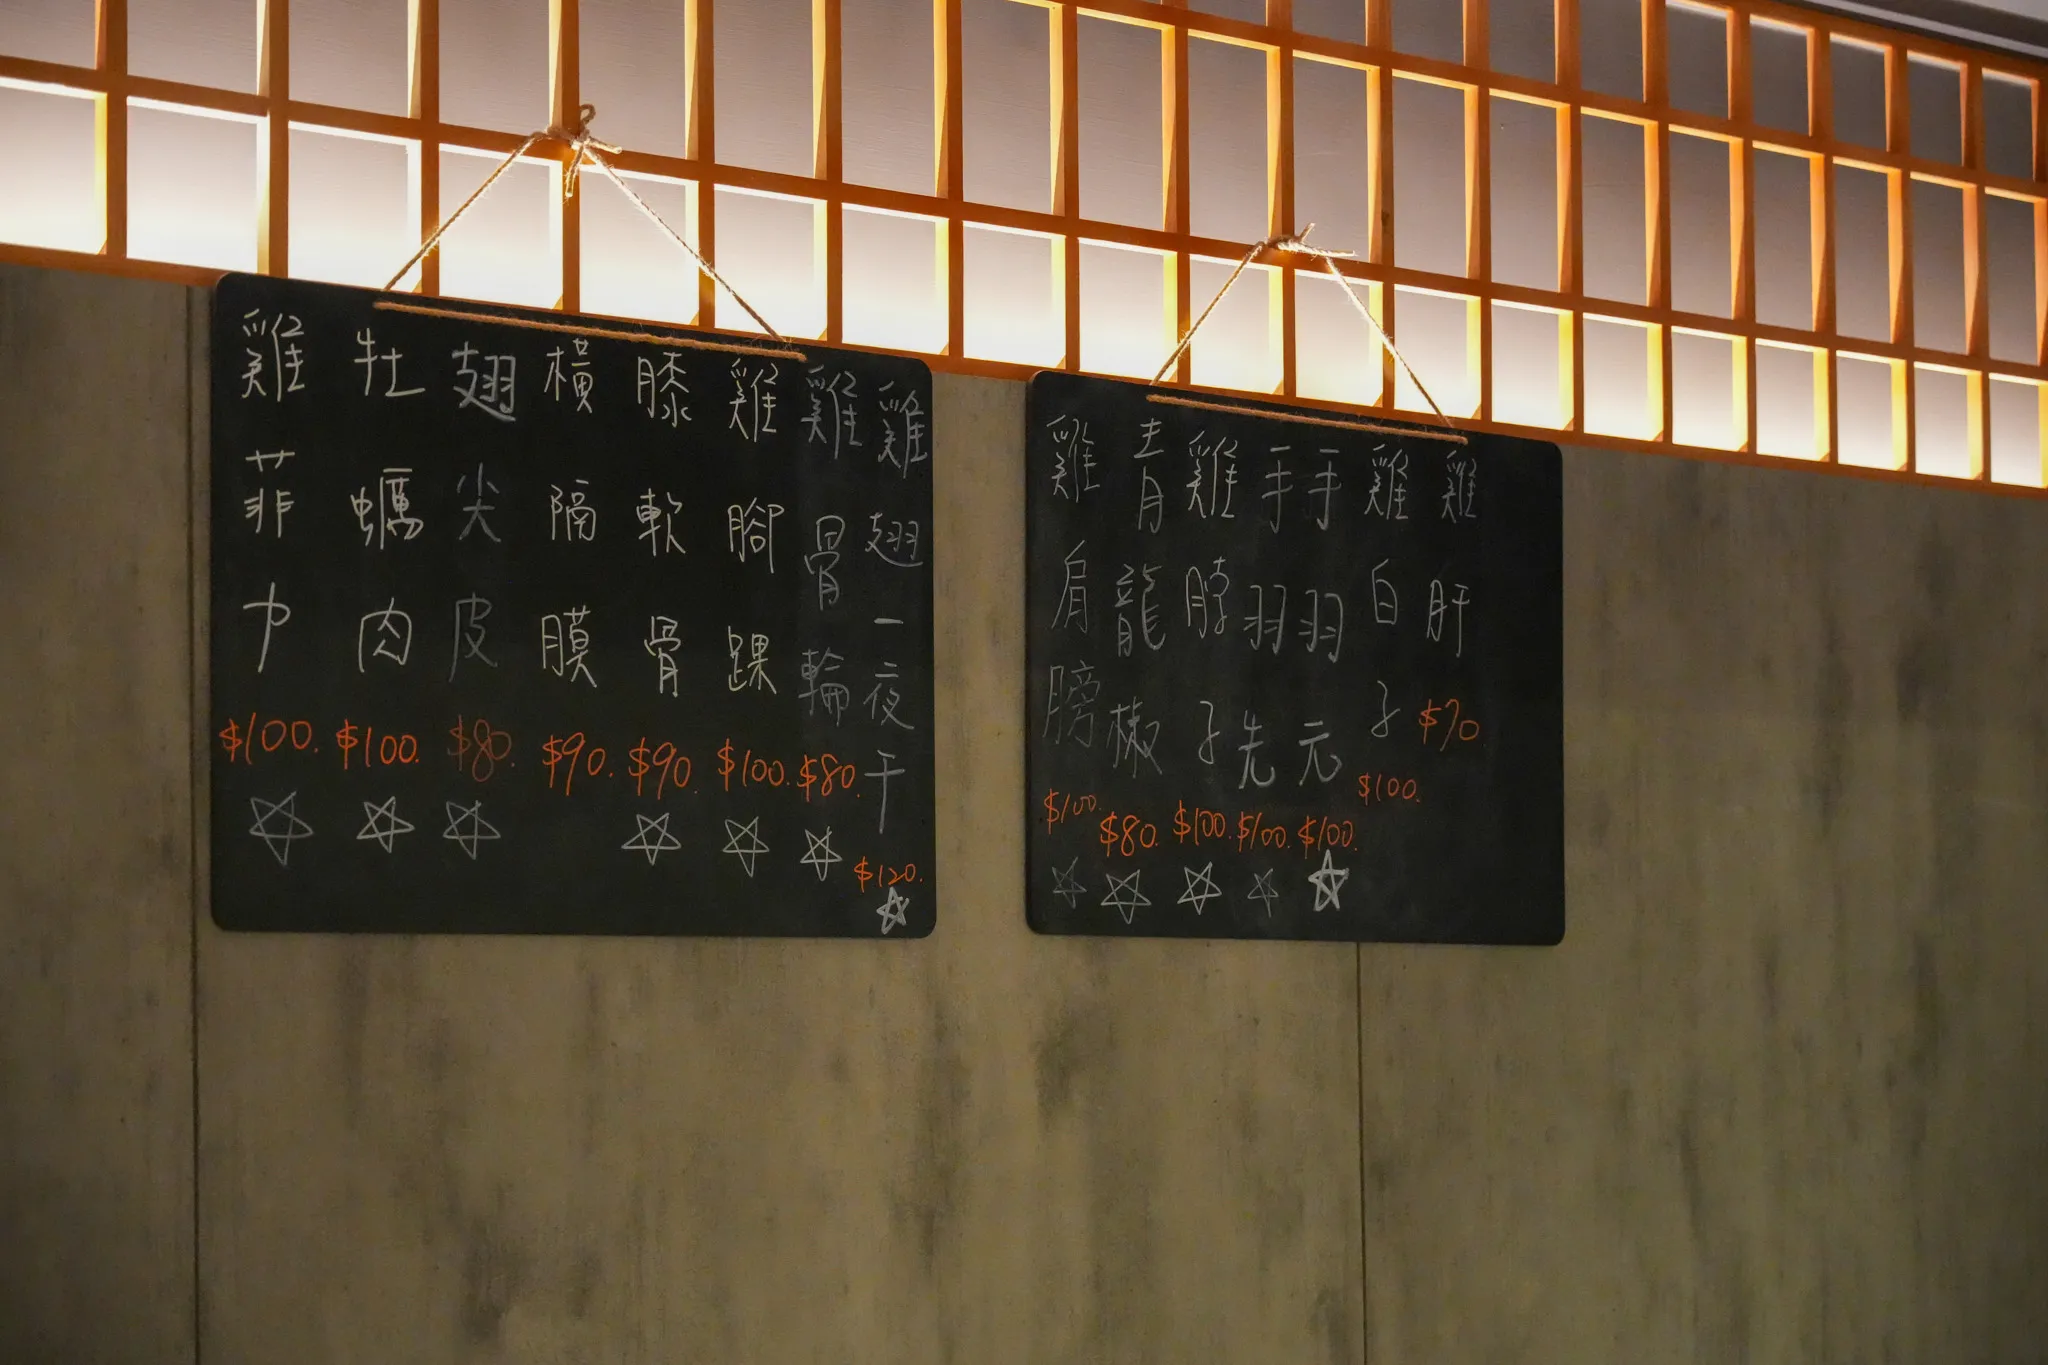 雞菲力
$100.
牡蠣肉
$100.
翅尖皮
$80.
橫隔膜
$90.
膝軟骨
$90.
雞腳踝
$100.
雞骨輪
$80.
雞翅一夜干
$120.
雞肩膀
$100.
青龍椒
$80.
雞脖子
$100.
手羽先
$100.
手羽元
$100.
雞白子
$100.
雞肝
$70.